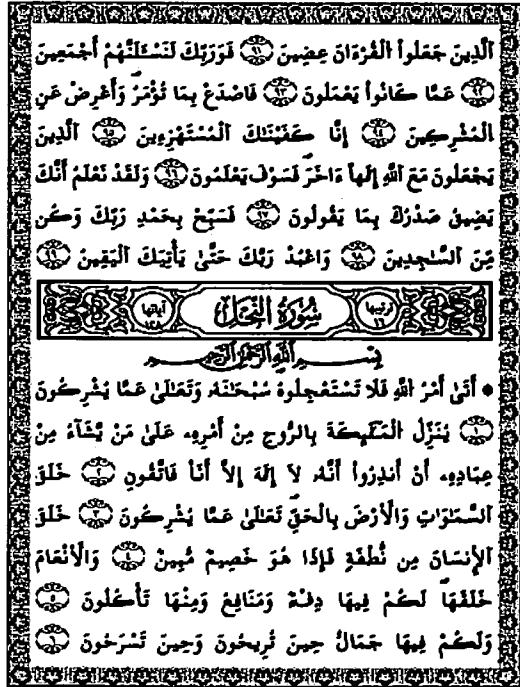 الَّذِينَ جَعَلُوا الْقُرْءَانَ عِضِينَ ٩١ فَوَرَبِّكَ لَنَسْـَٔلَنَّهُمْ أَجْمَعِينَ
٩٢ عَمَّا كَانُوا يَعْمَلُونَ ٩٣ فَاصْدَعْ بِمَا تُؤْمَرُ وَأَعْرِضْ عَنِ
الْمُشْرِكِينَ ٩٤ إِنَّا كَفَيْنَٰكَ الْمُسْتَهْزِءِينَ ٩٥ الَّذِينَ
يَجْعَلُونَ مَعَ اللَّهِ إِلَٰهاً ءَاخَرَ فَسَوْفَ يَعْلَمُونَ ٩٦ وَلَقَدْ نَعْلَمُ أَنَّكَ
يَضِيقُ صَدْرُكَ بِمَا يَقُولُونَ ٩٧ فَسَبِّحْ بِحَمْدِ رَبِّكَ وَكُن
مِّنَ السَّٰجِدِينَ ٩٨ وَاعْبُدْ رَبَّكَ حَتَّىٰ يَأْتِيَكَ الْيَقِينُ ٩٩
ترتيبها ١٦ سُورَةُ النَّحْلِ آياتها ١٢٨
بِسْمِ اللَّهِ الرَّحْمَٰنِ الرَّحِيمِ
أَتَىٰ أَمْرُ اللَّهِ فَلَا تَسْتَعْجِلُوهُ سُبْحَٰنَهُۥ وَتَعَٰلَىٰ عَمَّا يُشْرِكُونَ
١ يُنَزِّلُ الْمَلَٰٓئِكَةَ بِالرُّوحِ مِنْ أَمْرِهِۦ عَلَىٰ مَنْ يَّشَآءُ مِنْ
عِبَادِهِۦ أَنْ أَنذِرُوا أَنَّهُۥ لَا إِلَٰهَ إِلَّا أَنَا فَاتَّقُونِ ٢ خَلَقَ
السَّمَٰوَاتِ وَالْأَرْضَ بِالْحَقِّ تَعَٰلَىٰ عَمَّا يُشْرِكُونَ ٣ خَلَقَ
الْإِنسَانَ مِن نُّطْفَةٍ فَإِذَا هُوَ خَصِيمٌ مُّبِينٌ ٤ وَالْأَنْعَامَ
خَلَقَهَا لَكُمْ فِيهَا دِفْءٌ وَمَنَافِعُ وَمِنْهَا تَأْكُلُونَ ٥
وَلَكُمْ فِيهَا جَمَالٌ حِينَ تُرِيحُونَ وَحِينَ تَسْرَحُونَ ٦